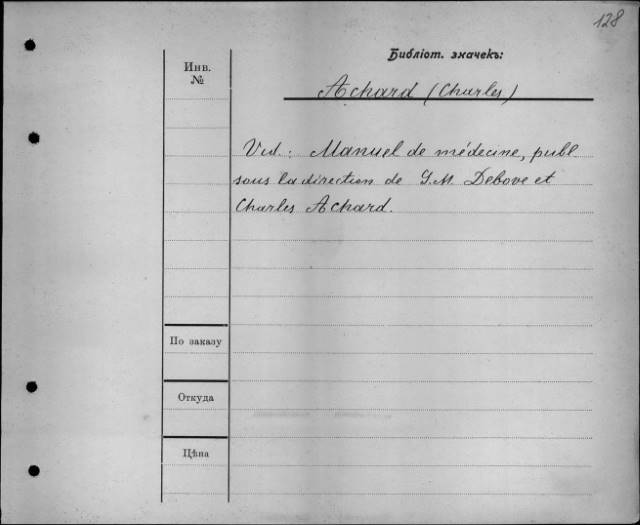 128
Библіот. значекъ:
Инв.
№
Achard (Charles)
Vid.: Manuel de médecine, publ.
sous la direction de G.M. Debove et
Charles Achard.
По заказу
Откуда
Цѣна